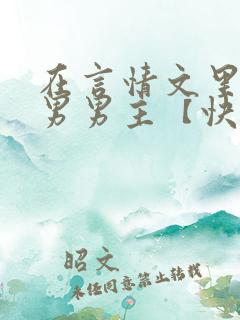 在言情文
男男主【快
昭文
未经同意禁止转载